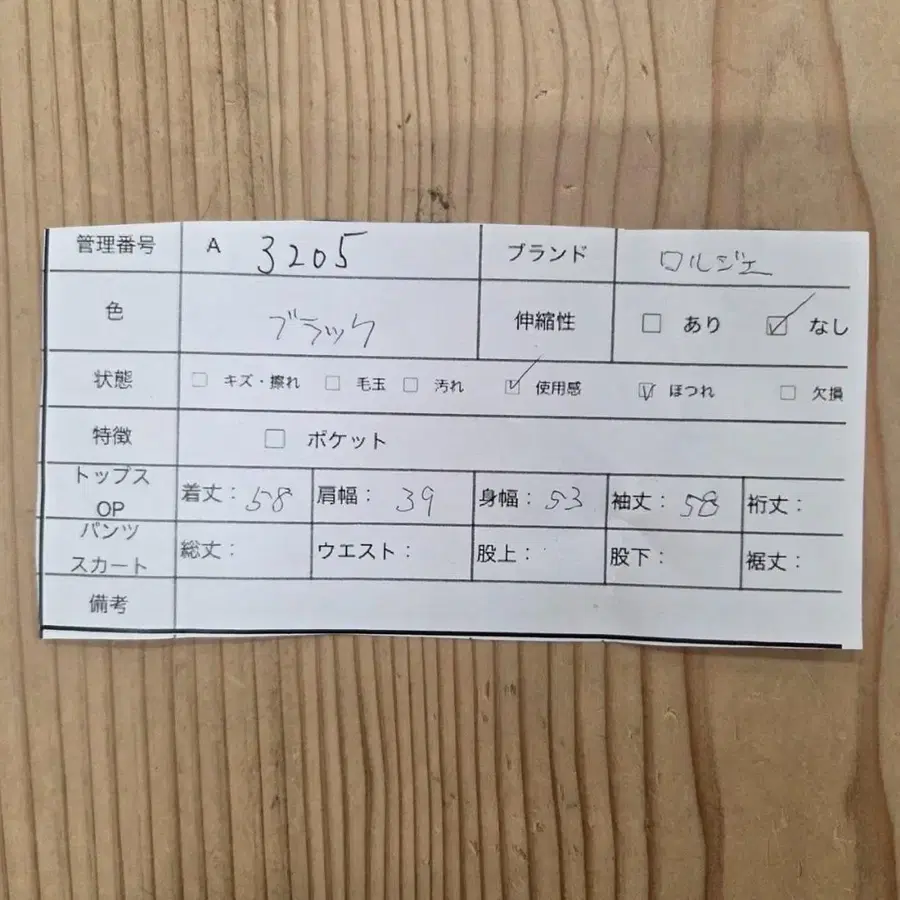 管理番号 A 3205 ブランド ロルジェ
色 ブラック 伸縮性 □ あり ☑ なし
状態 □ キズ・擦れ □ 毛玉 □ 汚れ ☑ 使用感 ☑ ほつれ □ 欠損
特徴 □ ポケット
トップス
OP 着丈: 58 肩幅: 39 身幅: 53 袖丈: 58 裄丈:
パンツ
スカート 総丈: ウエスト: 股上: 股下: 裾丈:
備考